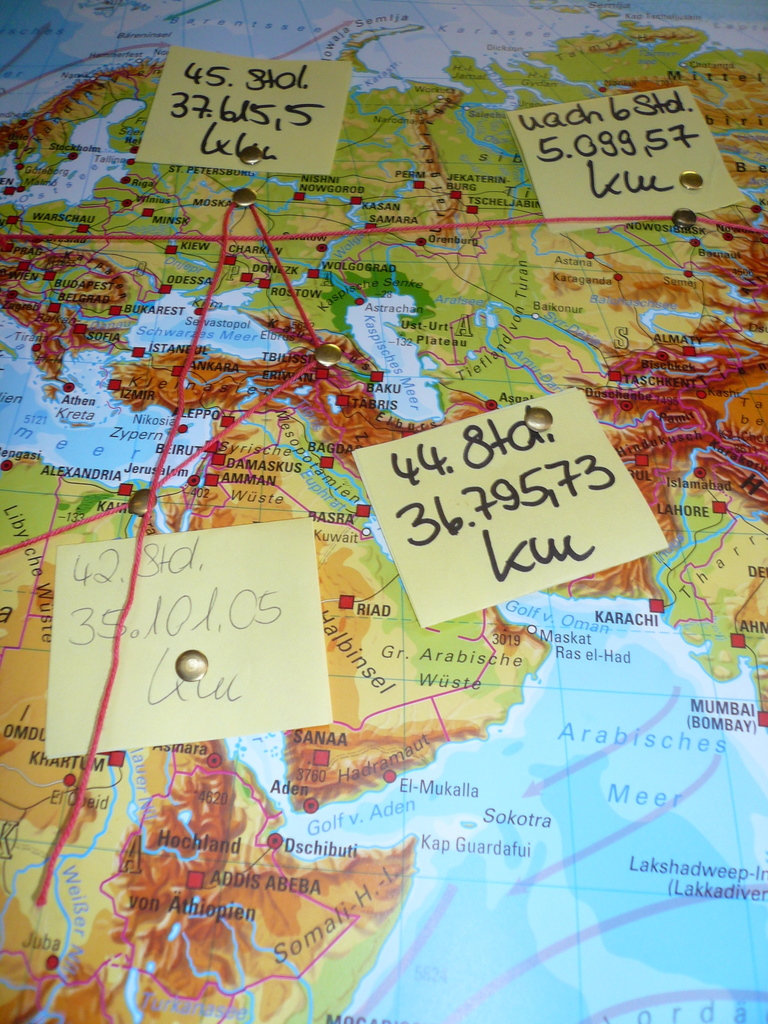 45. Std.
37.615,5
km
nach 6 Std.
5.099,57
km
44. Std.
36.795,73
km
42. Std.
35.101.05
km
Barentssee
Bäreninsel
Nowaja Semlja
Kap Tscheljuskin
Stockholm
Göteborg
Riga
Vilnius
WARSCHAU
MINSK
ST. PETERSBURG
MOSKA
NISHNI
NOWGOROD
KASAN
SAMARA
PERM
JEKATERIN-
BURG
TSCHELJABIN
NOWOSIBIRSK
Barnaul
Orenburg
Astana
Karaganda
Semej
KIEW
CHARKEW
DONEZK
ROSTOW
WOLGOGRAD
ODESSA
PRAG
WIEN
BUDAPEST
BELGRAD
BUKAREST
SOFIA
Sevastopol
Schwarzes Meer
Elbrus
Kaspische Senke
-28
Astrachan
Kaspisches Meer
Ust-Urt
Plateau
-132
Aralsee
Tiefland von Turan
Baikonur
ALMATY
Bischkek
TASCHKENT
Duschanbe
Pamir
Hindukusch
Islamabad
LAHORE
ISTANBUL
ANKARA
IZMIR
Athen
Kreta
5121
TBILISSI
ERIWAN
BAKU
TÄBRIS
Elburs
Nikosia
Zypern
BEIRUT
Syrische
Wüste
DAMASKUS
AMMAN
Jerusalem
-402
Mesopotamien
Euphrat
BAGDA
BASRA
Kuwait
ALEXANDRIA
-133
Libysche Wüste
RIAD
Halbinsel
Gr. Arabische
Wüste
3019
Golf v. Oman
Maskat
Ras el-Had
KARACHI
Tharr
AHM
MUMBAI
(BOMBAY)
Arabisches
Meer
SANAA
3760
Hadramaut
Aden
El-Mukalla
Golf v. Aden
Sokotra
Kap Guardafui
Lakshadweep-In
(Lakkadiven
OMDU
KHARTUM
El Obeid
Asmara
4620
Hochland
von Äthiopien
Dschibuti
ADDIS ABEBA
Somali-H.-I.
Weißer Nil
Juba
Turkanasee
5824
MOGADISCHU